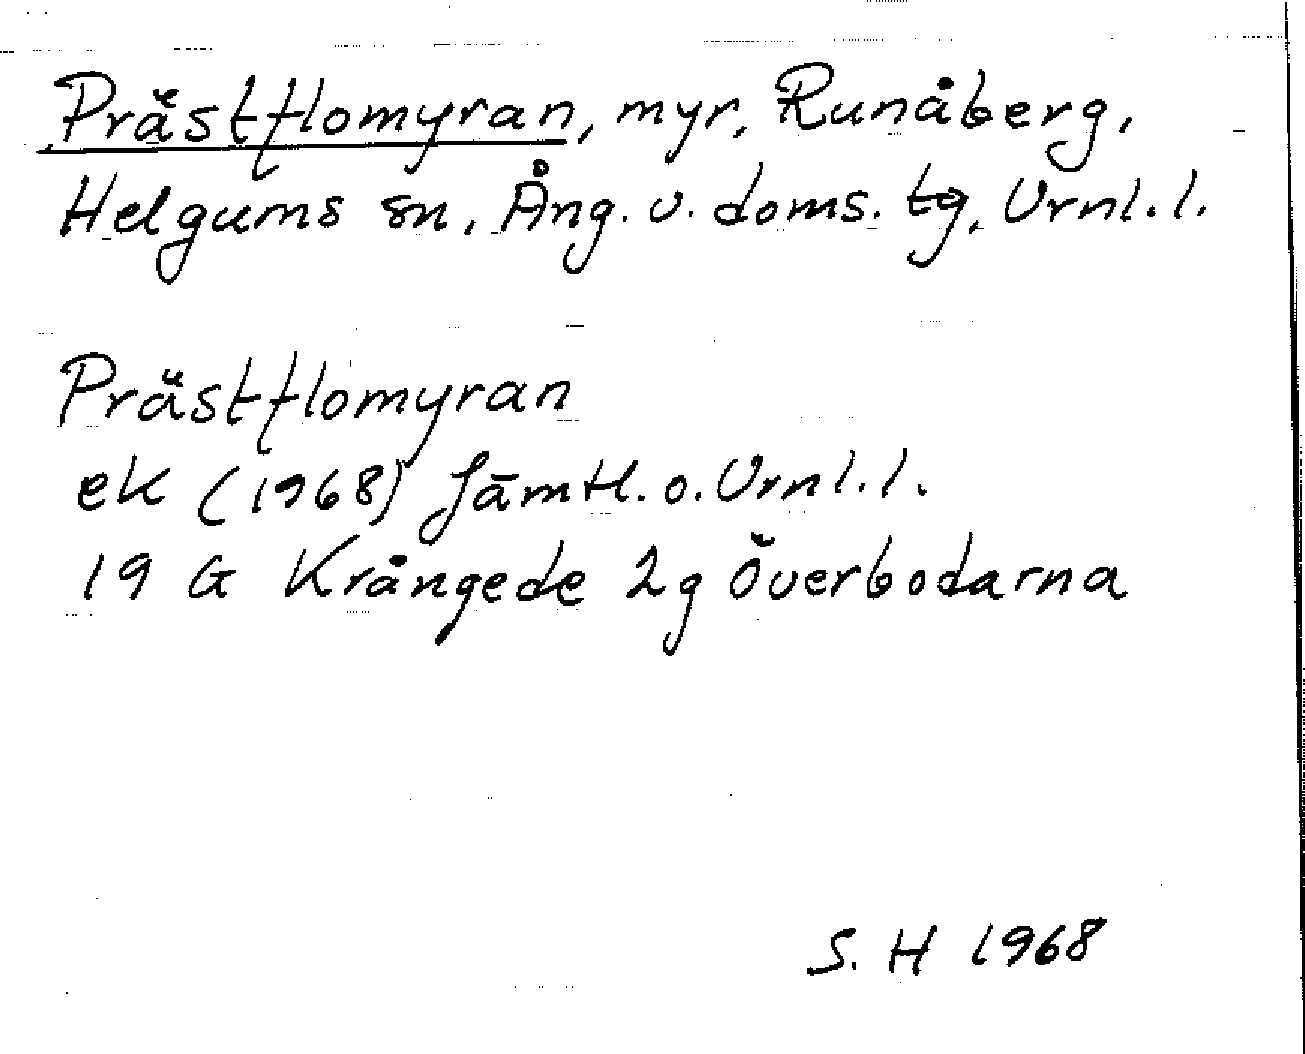 Prästflomyran, myr, Runåberg,
Helgums sn, Ång. v. doms. tg, Vrnl.l.
Prästflomyran
ek (1968) Jämtl. o. Vrnl.l.
19 G Krångede 2g Överbodarna
S. H 1968